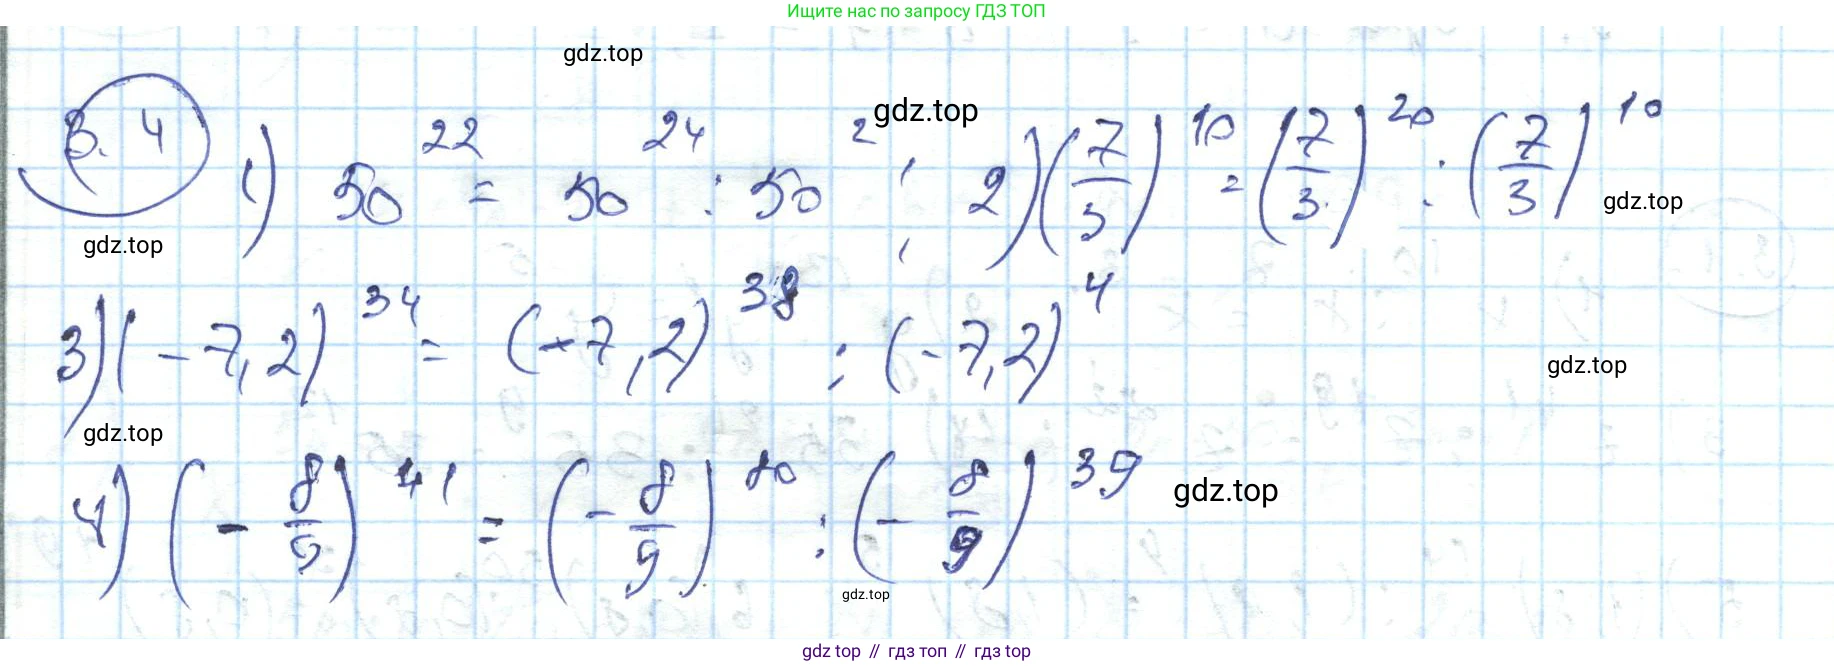 Ищите нас по запросу ГДЗ ТОП
gdz.top
3.4 1) 50^22 = 50^24 : 50^2 ; 2) (7/3)^10 = (7/3)^20 : (7/3)^10
gdz.top
gdz.top
gdz.top
3) (-7,2)^34 = (-7,2)^38 : (-7,2)^4
gdz.top
gdz.top
4) (-8/9)^41 = (-8/9)^80 : (-8/9)^39
gdz.top
gdz.top
gdz top // гдз топ // гдз top